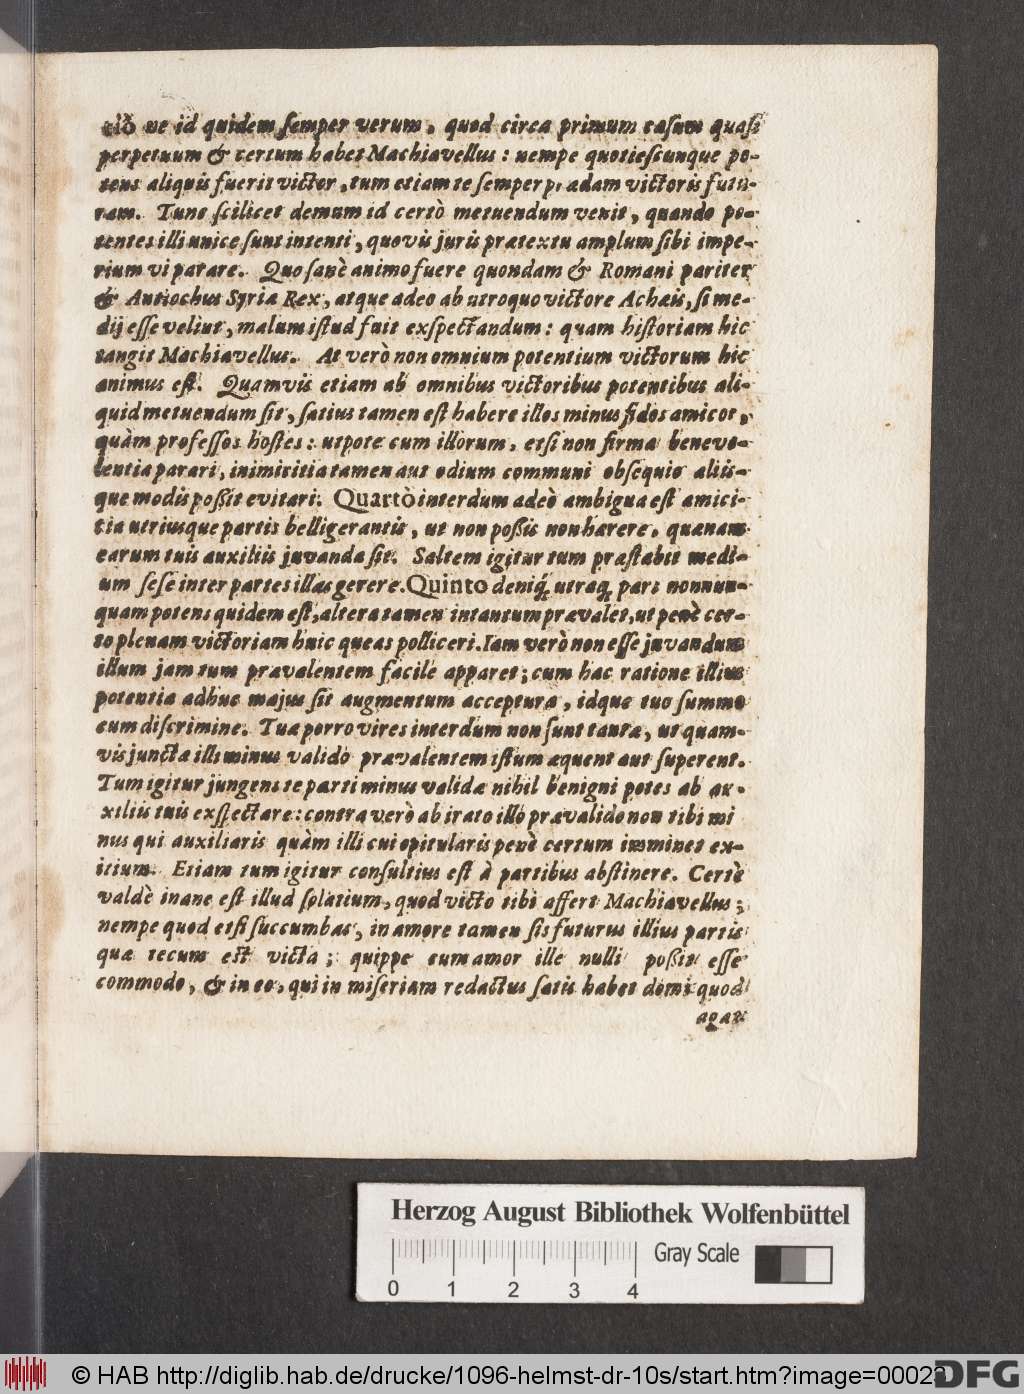 ne id quidem ſemper verum, quod circa primum caſum quaſi
perpetuum & certum habet Machiavellus: nempe quotieſcunque po-
tens aliquis fuerit victor, tum etiam te ſemper prædam victoris futu-
ram. Tunc ſcilicet demum id certò metuendum venit, quando po-
tentes illi unice ſunt intenti, quovis juris prætextu amplum ſibi impe-
rium vi parare. Quo ſanè animo fuere quondam & Romani pariter
& Antiochus Syriæ Rex, atque adeo ab utroquo victore Achæis, ſi me-
dij eſſe velint, malum iſtud fuit exſpectandum: quam hiſtoriam hic
tangit Machiavellus. At verò non omnium potentium victorum hic
animus eſt. Quamvis etiam ab omnibus victoribus potentibus ali-
quid metuendum ſit, ſatius tamen eſt habere illos minus fidos amicos,
quàm profeſſos hoſtes: utpote cum illorum, etſi non firma benevo-
lentia parari, inimicitia tamen aut odium communi obſequio aliis-
que modis poßit evitari. Quartò interdum adeò ambigua eſt amici-
tia utriusque partis belligerantis, ut non poßis non hærere, quænam
earum tuis auxiliis juvanda ſit. Saltem igitur tum præſtabit medi-
um ſeſe inter partes illas gerere. Quinto deniq́; utraq; pars nonnun-
quam potens quidem eſt, altera tamen in tantum prævalet, ut penè cer-
to plenam victoriam huic queas polliceri. Iam verò non eſſe juvandum
illum jam tum prævalentem facile apparet; cum hac ratione illius
potentia adhuc majus ſit augmentum acceptura, idque tuo ſummo
cum diſcrimine. Tuæ porro vires interdum non ſunt tantæ, ut quam-
vis junctæ illi minus valido prævalentem iſtum æquent aut ſuperent.
Tum igitur jungens te parti minus validæ nihil benigni potes ab au-
xiliis tuis exſpectare: contra verò ab irato illo prævalido non tibi mi
nus qui auxiliaris quàm illi cui opitularis penè certum imminet ex-
itium. Etiam tum igitur conſultius eſt à partibus abſtinere. Certè
valdè inane eſt illud ſolatium, quod victo tibi affert Machiavellus;
nempe quod etſi ſuccumbas, in amore tamen ſis futurus illius partis
quæ tecum eſt victa; quippe cum amor ille nulli poßit eſſe
commodo, & in eo, qui in miſeriam redactus ſatis habet domi quod
agat
Herzog August Bibliothek Wolfenbüttel
Gray Scale
0 1 2 3 4
© HAB http://diglib.hab.de/drucke/1096-helmst-dr-10s/start.htm?image=00023
DFG